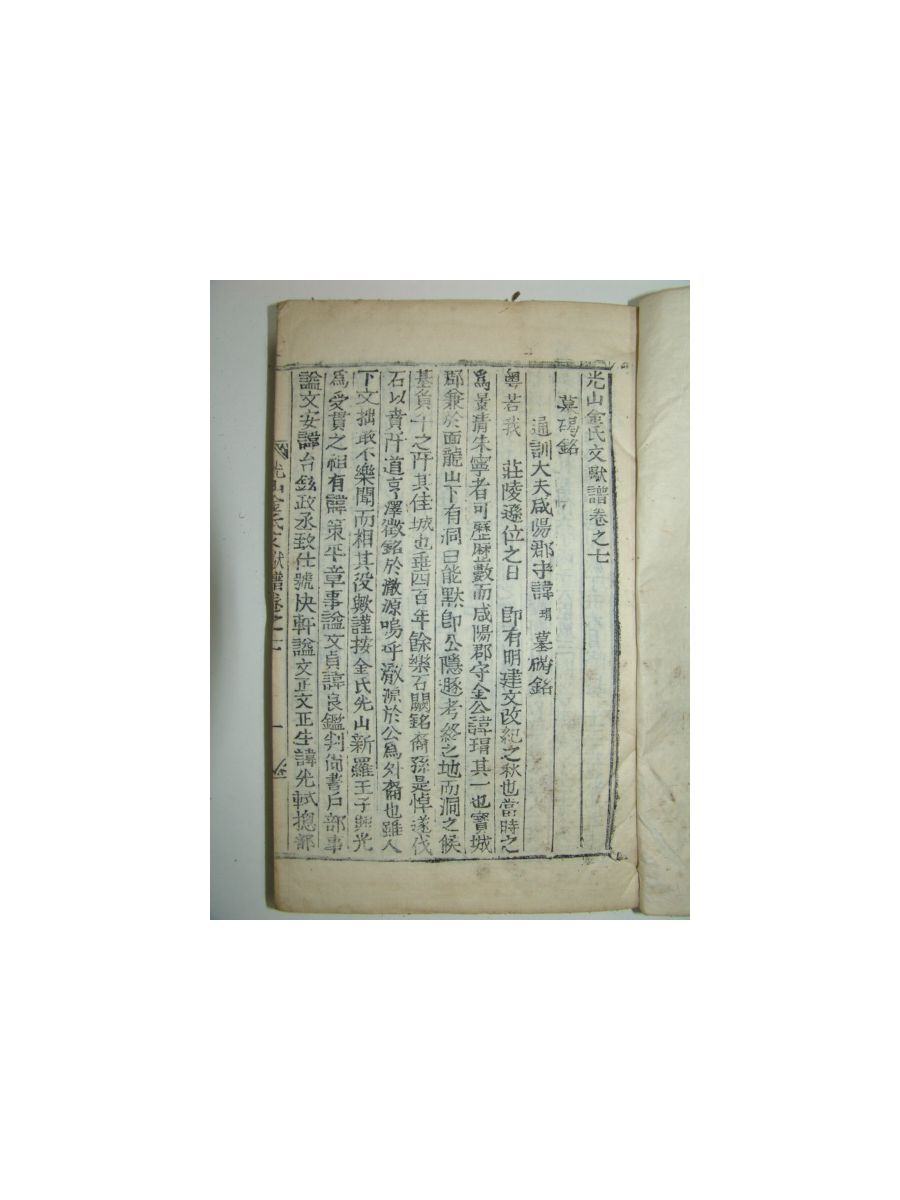 光山金氏文獻譜卷之七
墓碣銘
通訓大夫咸陽郡守諱瑁墓碣銘
粤若我 莊陵遜位之日 卽有明建文改紀之秋也當時之
爲景清朱寧者可歷歷數而咸陽郡守金公諱瑁其一也寶城
郡兼於面龍山下有洞曰能默卽公隱遯考終之地而洞之候
基負子之阡其佳城也垂四百年餘樂石闕銘裔孫是悼遂伐
石以賁阡道亨澤徵銘於澈源嗚乎澈源於公爲外裔也雖人
下文拙敢不樂聞而相其役歟謹按金氏先山新羅王子興光
爲受貫之祖有諱策平章事諡文貞諱良鑑判尙書戶部事
諡文安諱台鉉政丞致仕號快軒諡文正文正生諱光軾摠部
光山金氏文獻譜卷之七 一